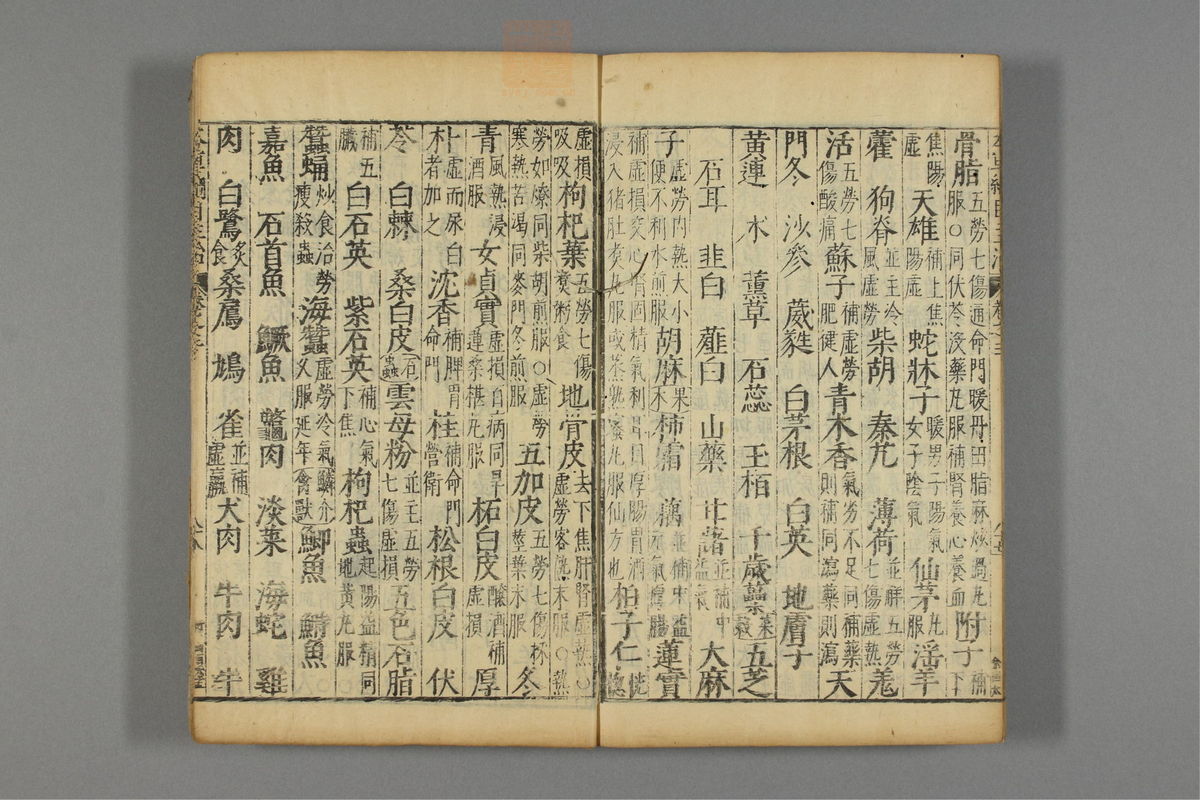 骨脂五勞七傷通命門暖丹田脂麻炒過丸服○同伏苓沒藥丸服補腎養心養血附子補下
焦陽虛天雄補上焦陽虛蛇牀子暖男子陽氣女子陰氣仙茅丸服淫羊
藿狗脊並主冷風虛勞柴胡秦艽薄荷並解五勞七傷虛熱羗
活五勞七傷酸痛蘇子補虛勞肥健人青木香氣劣不足同補藥則補同瀉藥則瀉天
門冬沙參葳蕤白茅根白英地膚子
黃連朮薰草石蕊玉柏千歲虆菜穀五芝
石耳韭白薤白山藥甘藷並補中益氣大麻
子虛勞內熱大小便不利水煎服胡麻果木柿霜藕並補中益氣厚腸蓮實
補虛損交心腎固精氣利耳目厚腸胃酒浸入猪肚煑丸服或蒸熟蜜丸服仙方也柏子仁恍惚
虛損吸吸枸杞葉五勞七傷煑粥食地骨皮去下焦肝腎虛熱○虛勞客熱末服○熱
勞如燎同柴胡煎服○虛勞寒熱苦渴同麥門冬煎服五加皮五勞七傷杯莖葉末服冬
青風熱浸酒服女貞實虛損百病同旱蓮桑椹丸服柘白皮釀酒補虛損厚
朴虛而尿白者加之沈香補脾胃命門桂補命門營衛松根白皮伏
苓白棘桑白皮石蟲雲母粉並主五勞七傷虛損五色石脂
補五臟白石英紫石英補心氣下焦枸杞蟲起陽益精同地黃丸服
蠶蛹炒食治勞瘦殺蟲海蠶虛勞冷氣久服延年鱗介禽獸鯽魚鰣魚
嘉魚石首魚鱖魚鼈肉淡菜海蛇雞
肉白鷺炙食桑鳲鳩雀並補虛羸犬肉牛肉牛